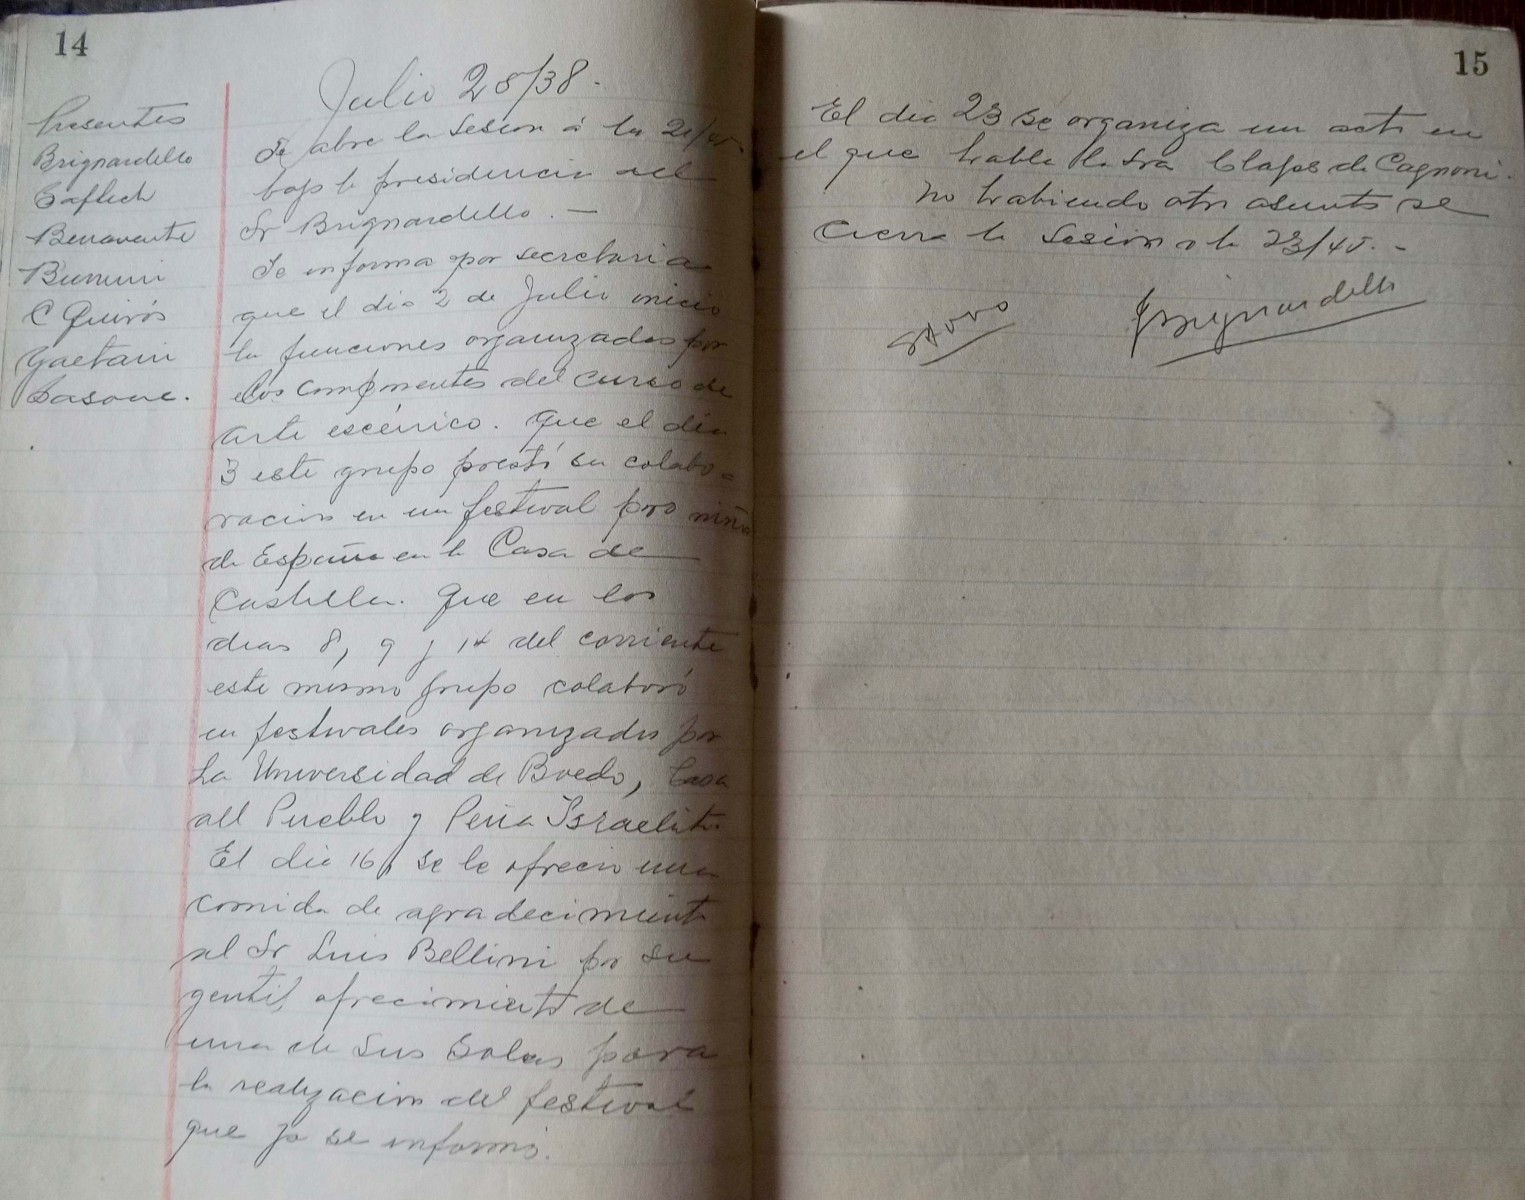 14
Julio 28/38.
Presentes
Brignardello
Caflech
Benavente
C Quirós
Gaetani
Sasone.
Se abre la Sesion á la 21/45.
bajo la presidencia del
Sr Brignardello. —
Se informa por secretaria
que el dia 2 de Julio inicio
la funciones organizadas por
los componentes del curso de
arte escénico. Que el dia
3 este grupo prestó su colabo-
racion en un festival pro niños
de España en la Casa de
Castilla. Que en los
dias 8, 9 y 14 del corriente
este mismo grupo colaboró
en festivales organizados por
La Universidad de Boedo, Casa
del Pueblo y Peña Israelita.
El dia 16, se le ofrecio una
comida de agradecimiento
al Sr Luis Bellini por su
gentil ofrecimiento de
una de sus Salas para
la realizacion del festival
que ya se informó.
15
El dia 23 se organiza un acto en
el que habla la Sra Clafs de Cagnoni.
No habiendo otro asunto se
cierra la Sesion a la 23/45. -
Brignardello